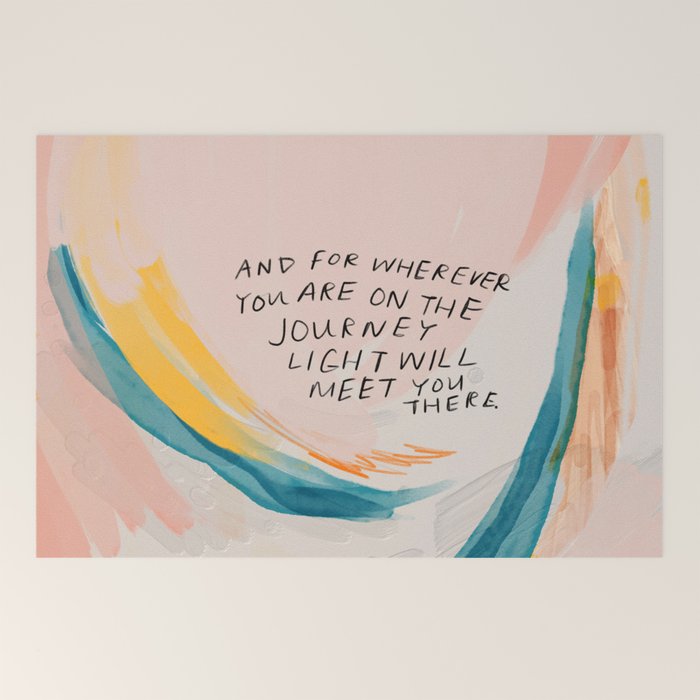 AND FOR WHEREVER
YOU ARE ON THE
JOURNEY
LIGHT WILL
MEET YOU
THERE.